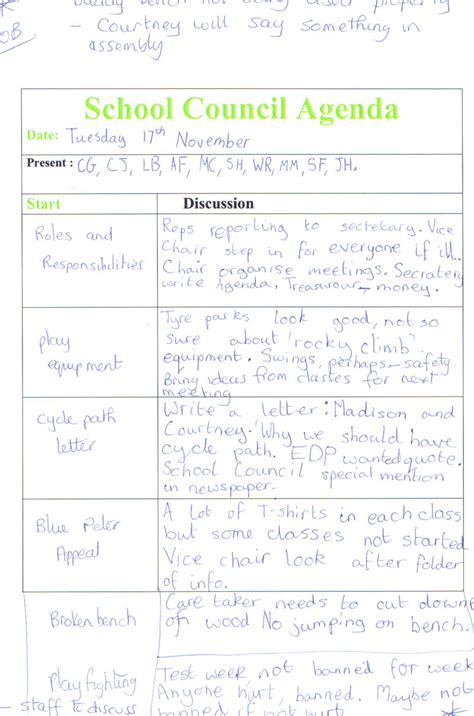 buddy bench not being used properly
OB - Courtney will say something in
assembly
School Council Agenda
Date: Tuesday 17th November
Present : CG, CJ, LB, AF, MC, SH, WR, MM, SF, JH.
Start
Discussion
Roles and
Responsibilities
Reps reporting to secretary. Vice
Chair step in for everyone if ill.
Chair organise meetings. Secratery
write Agenda, Treasurour - money.
Play
equipment
Tyre parks look good, not so
sure about 'rocky climb'
equipment. Swings, perhaps - safety.
Bring ideas from classes for next
meeting
Cycle path
letter
Write a letter: Madison and
Courtney. 'Why we should have
cycle path. EDP wanted quote.
School Council special mention
in newspaper.
Blue Peter
Appeal
A lot of T-shirts in each class
but some classes not started
Vice chair look after folder
of info.
Broken bench
Care taker needs to cut down
of wood. No jumping on bench.
Play fighting
- staff to discuss
Test week not banned for week
Anyone hurt, banned. Maybe not
banned if not hurt